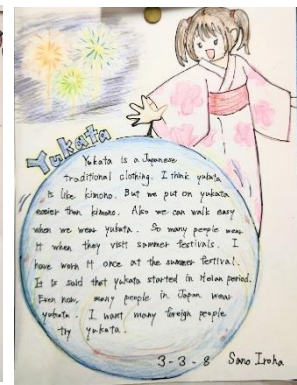 Yukata
Yukata is a Japanese
traditional clothing. I think yukata
is like kimono. But we put on yukata
easier than kimono. Also we can walk easy
when we wear yukata. So many people wear
it when they visit summer festivals. I
have worn it once at the summer festival.
It is said that yukata started in Heian period.
Even now, many people in Japan wear
yukata. I want many foreign people
try yukata.
3-3-8 Sano Iroha